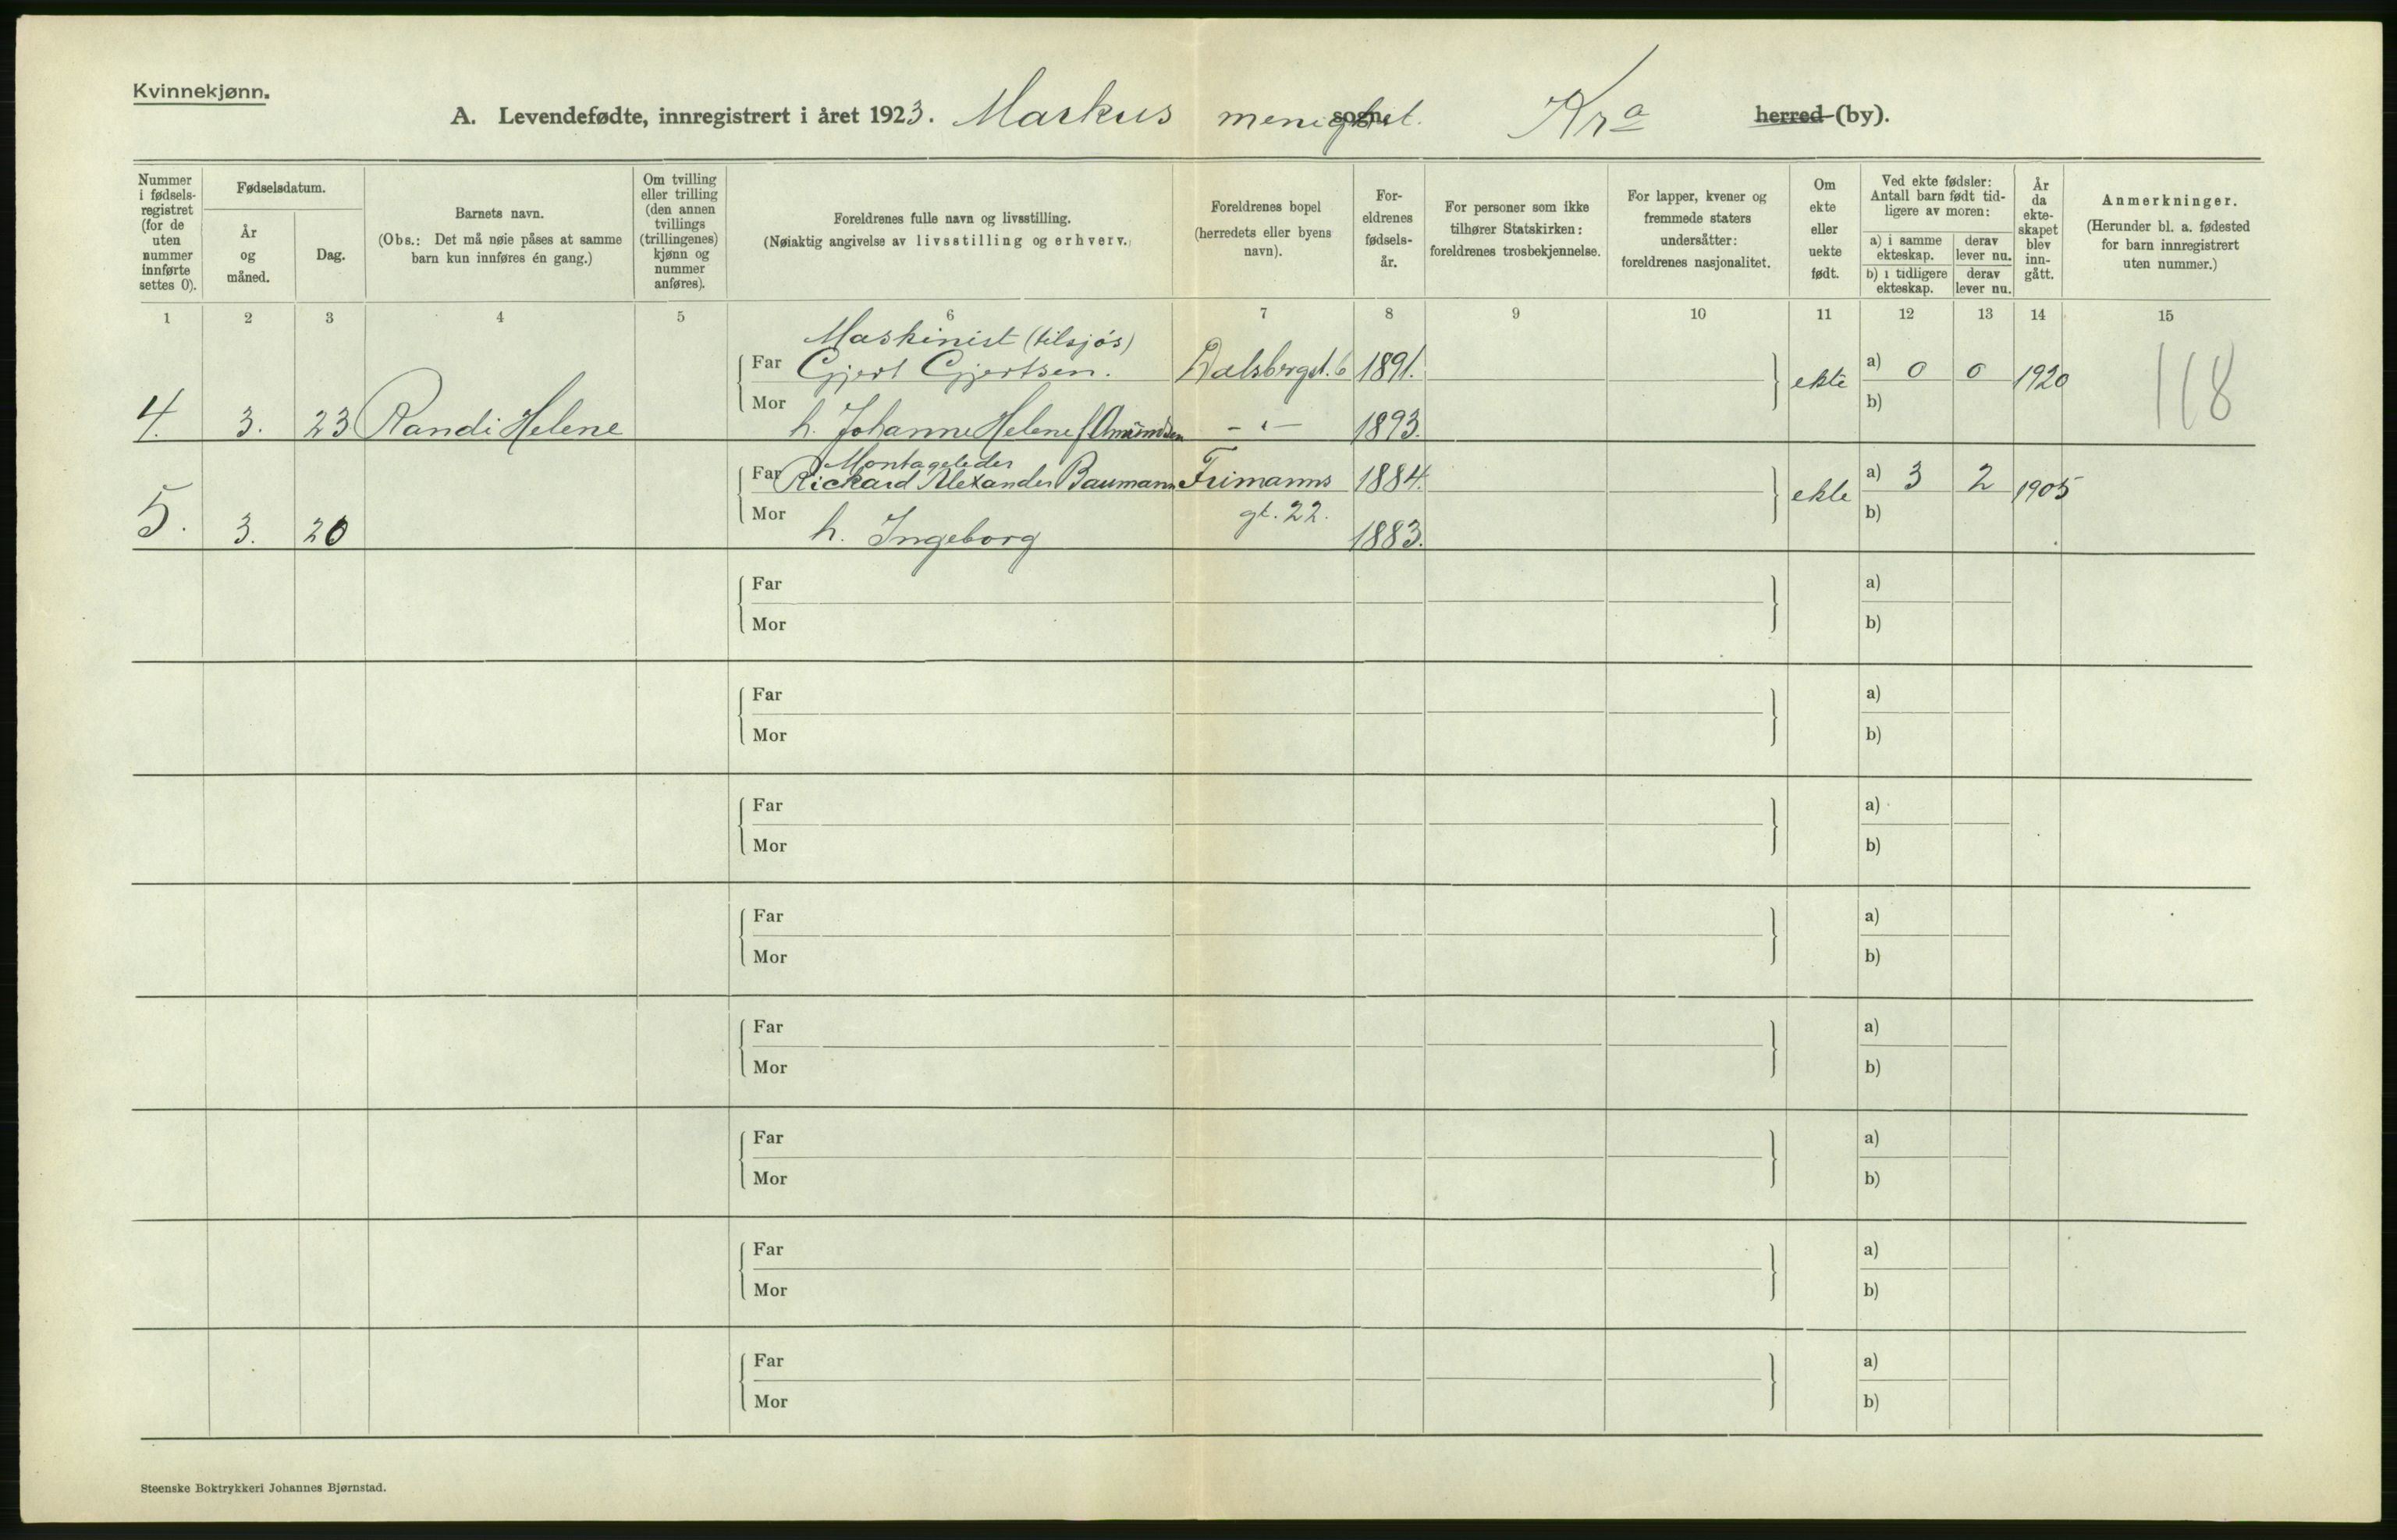 Kvinnekjønn.
A. Levendefødte, innregistrert i året 1923. Markus menighet. sogn. Kra herred (by).
Nummer i fødsels-registret (for de uten nummer innførte settes 0).
Fødselsdatum.
År og måned.
Dag.
Barnets navn.
(Obs.: Det må nøie påses at samme barn kun innføres én gang.)
Om tvilling eller trilling (den annen tvillings (trillingenes) kjønn og nummer anføres).
Foreldrenes fulle navn og livsstilling.
(Nøiaktig angivelse av livsstilling og erhverv.)
Foreldrenes bopel (herredets eller byens navn).
For-eldrenes fødsels-år.
For personer som ikke tilhører Statskirken: foreldrenes trosbekjennelse.
For lapper, kvener og fremmede staters undersåtter: foreldrenes nasjonalitet.
Om ekte eller uekte født.
Ved ekte fødsler: Antall barn født tid-ligere av moren:
a) i samme ekteskap.
derav lever nu.
b) i tidligere ekteskap.
derav lever nu.
År da ekte-skapet blev inn-gått.
Anmerkninger.
(Herunder bl. a. fødested for barn innregistrert uten nummer.)
1 2 3 4 5 6 7 8 9 10 11 12 13 14 15
Maskinist (tilsjøs)
Far Gjert Gjertsen. Dalsbergst. 6 1891. ekte a) 0 0 1920 118
4. 3. 23 Randi Helene Mor h. Johanne Helene f Amundsen - " - 1893. b)
Montageleder
Far Rickard Alexander Baumann Frimanns 1884. ekte a) 3 2 1905
5. 3. 20 Mor h. Ingeborg gt. 22. 1883. b)
Far a)
Mor b)
Far a)
Mor b)
Far a)
Mor b)
Far a)
Mor b)
Far a)
Mor b)
Far a)
Mor b)
Far a)
Mor b)
Far a)
Mor b)
Steenske Boktrykkeri Johannes Bjørnstad.